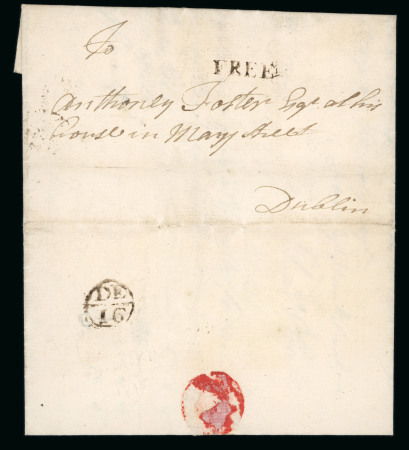 To
FREE
Anthoney Foster Esqr at his
house in Mary street
Dublin
DE
16